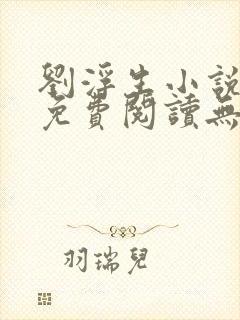 劉浮生小說
免費閱讀無
羽瑞兒